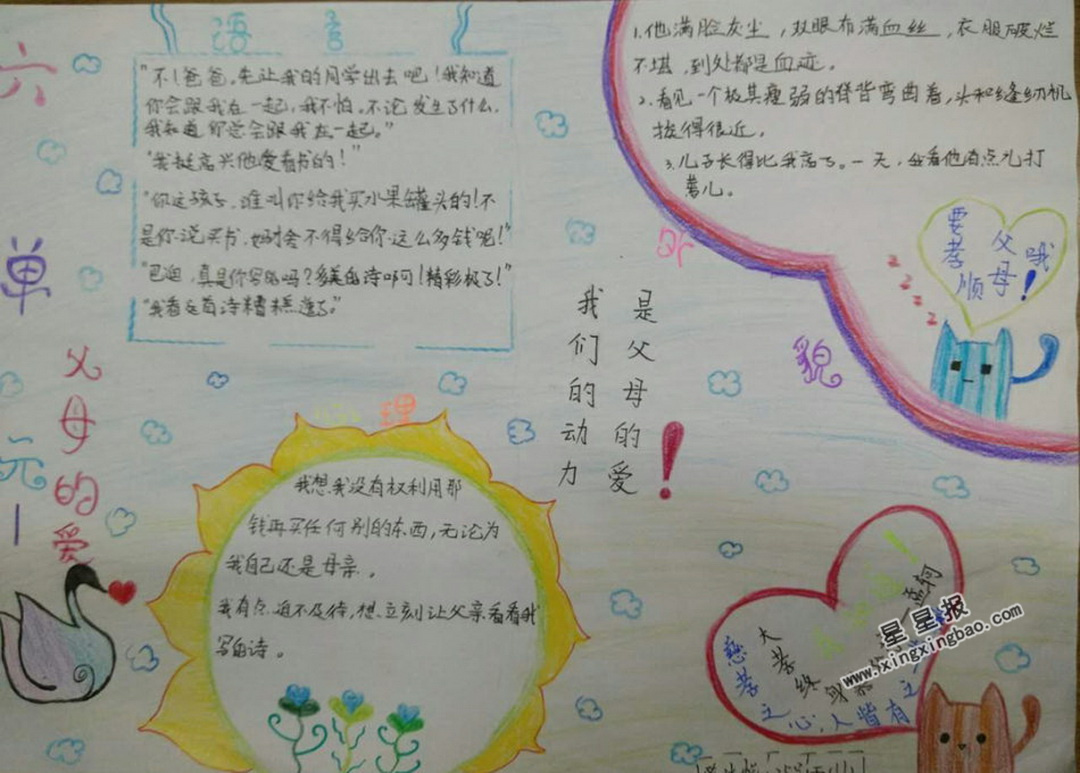 六单元—
父母的爱
语言
"不!爸爸,先让我的同学出去吧!我知道
你会跟我在一起,我不怕。不论发生了什么,
我知道你总会跟我在一起。"
"我挺高兴他爱看书的!"
"你这孩子,谁叫你给我买水果罐头的!不
是你说买书,妈才舍不得给你这么多钱呢!"
"巴迪,真是你写的吗?多美的诗啊!精彩极了!"
"我看这首诗糟糕透了。"
1.他满脸灰尘,双眼布满血丝,衣服破烂
不堪,到处都是血迹。
2.看见一个极其瘦弱的脊背弯曲着,头和缝纫机
挨得很近。
3.儿子长得比我高了。一天,坐看他有点儿打
蔫儿。
外貌
要孝顺
父母哦!
z z z z
是父母的爱
我们的动力!
心理
我想我没有权利用那
钱再买任何别的东西,无论为
我自己还是母亲。
我有点迫不及待,想立刻让父亲看看我
写的诗。
大孝终身
慈孝之心,人皆有之
星星报
www.xingxingbao.com